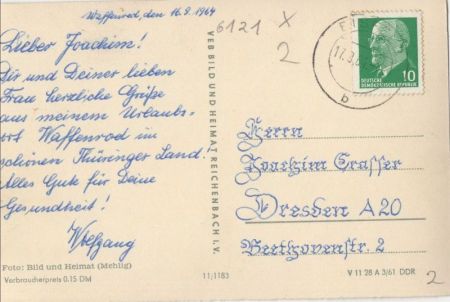 Waffenrod, den 16.9.1964
Lieber Joachim!
Dir und Deiner lieben
Frau herzliche Grüße
aus meinem Urlaubs-
ort Waffenrod im
schönen Thüringer Land!
Alles Gute für Deine
Gesundheit!
Wolfgang
Foto: Bild und Heimat (Mehlig)
Verbraucherpreis 0.15 DM
VEB BILD UND HEIMAT REICHENBACH I. V.
11/1183
6121 X
2
b
DEUTSCHE
DEMOKRATISCHE REPUBLIK
10
Herrn
Joachim Grasser
Dresden A20
Beethovenstr. 2
V 11 28 A 3/61 DDR
2